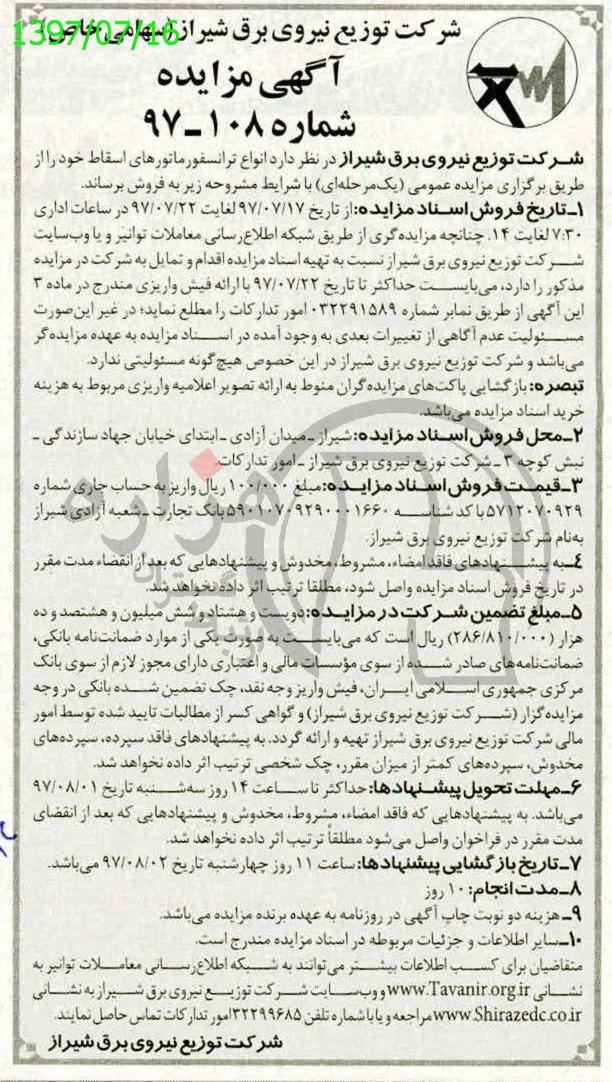 شرکت توزیع نیروی برق شیراز (سهامی خاص)
1397/07/16
آگهی مزایده
شماره ۱۰۸-۹۷
شرکت توزیع نیروی برق شیراز در نظر دارد انواع ترانسفورماتورهای اسقاط خود را از
طریق برگزاری مزایده عمومی (یک‌مرحله‌ای) با شرایط مشروحه زیر به فروش برساند.
۱ـ تاریخ فروش اسناد مزایده: از تاریخ ۹۷/۰۷/۱۷ لغایت ۹۷/۰۷/۲۲ در ساعات اداری
۷:۳۰ لغایت ۱۴. چنانچه مزایده‌گری از طریق شبکه اطلاع‌رسانی معاملات توانیر و یا وب‌سایت
شرکت توزیع نیروی برق شیراز نسبت به تهیه اسناد مزایده اقدام و تمایل به شرکت در مزایده
مذکور را دارد، می‌بایست حداکثر تا تاریخ ۹۷/۰۷/۲۲ با ارائه فیش واریزی مندرج در ماده ۳
این آگهی از طریق نمابر شماره ۰۳۲۲۹۱۵۸۹ امور تدارکات را مطلع نماید؛ در غیر این‌صورت
مسئولیت عدم آگاهی از تغییرات بعدی به وجود آمده در اسناد مزایده به عهده مزایده‌گر
می‌باشد و شرکت توزیع نیروی برق شیراز در این خصوص هیچ‌گونه مسئولیتی ندارد.
تبصره: بازگشایی پاکت‌های مزایده‌گران منوط به ارائه تصویر اعلامیه واریزی مربوط به هزینه
خرید اسناد مزایده می‌باشد.
۲ـ محل فروش اسناد مزایده: شیراز ـ میدان آزادی ـ ابتدای خیابان جهاد سازندگی ـ
نبش کوچه ۳ ـ شرکت توزیع نیروی برق شیراز ـ امور تدارکات.
۳ـ قیمت فروش اسناد مزایده: مبلغ ۱۰۰/۰۰۰ ریال واریز به حساب جاری شماره
۵۷۱۲۰۷۰۹۲۹ با کد شناسه ۵۹۰۱۰۷۰۹۲۹۰۰۰۱۶۶۰ بانک تجارت ـ شعبه آزادی شیراز
به‌نام شرکت توزیع نیروی برق شیراز.
۴ـ به پیشنهادهای فاقد امضاء، مشروط، مخدوش و پیشنهادهایی که بعد از انقضاء مدت مقرر
در تاریخ فروش اسناد مزایده واصل شود، مطلقا ترتیب اثر داده نخواهد شد.
۵ـ مبلغ تضمین شرکت در مزایده: دویست و هشتاد و شش میلیون و هشتصد و ده
هزار (۲۸۶/۸۱۰/۰۰۰) ریال است که می‌بایست به صورت یکی از موارد ضمانت‌نامه بانکی،
ضمانت‌نامه‌های صادر شده از سوی مؤسسات مالی و اعتباری دارای مجوز لازم از سوی بانک
مرکزی جمهوری اسلامی ایران، فیش واریز وجه نقد، چک تضمین شده بانکی در وجه
مزایده‌گزار (شرکت توزیع نیروی برق شیراز) و گواهی کسر از مطالبات تایید شده توسط امور
مالی شرکت توزیع نیروی برق شیراز تهیه و ارائه گردد. به پیشنهادهای فاقد سپرده، سپرده‌های
مخدوش، سپرده‌های کمتر از میزان مقرر، چک شخصی ترتیب اثر داده نخواهد شد.
۶ـ مهلت تحویل پیشنهادها: حداکثر تا ساعت ۱۴ روز سه‌شنبه تاریخ ۹۷/۰۸/۰۱
می‌باشد. به پیشنهادهایی که فاقد امضاء، مشروط، مخدوش و پیشنهادهایی که بعد از انقضای
مدت مقرر در فراخوان واصل می‌شود مطلقاً ترتیب اثر داده نخواهد شد.
۷ـ تاریخ بازگشایی پیشنهادها: ساعت ۱۱ روز چهارشنبه تاریخ ۹۷/۰۸/۰۲ می‌باشد.
۸ـ مدت انجام: ۱۰ روز
۹ـ هزینه دو نوبت چاپ آگهی در روزنامه به عهده برنده مزایده می‌باشد.
۱۰ـ سایر اطلاعات و جزئیات مربوطه در اسناد مزایده مندرج است.
متقاضیان برای کسب اطلاعات بیشتر می‌توانند به شبکه اطلاع‌رسانی معاملات توانیر به
نشانی www.Tavanir.org.ir و وب‌سایت شرکت توزیع نیروی برق شیراز به نشانی
www.Shirazedc.co.ir مراجعه و یا با شماره تلفن ۳۲۲۹۹۶۸۵ امور تدارکات تماس حاصل نمایند.
شرکت توزیع نیروی برق شیراز